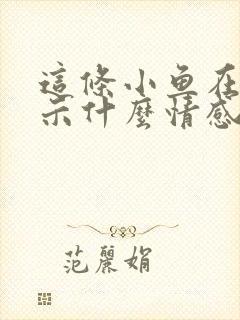 這條小魚在
示什麼情感
范麗娟